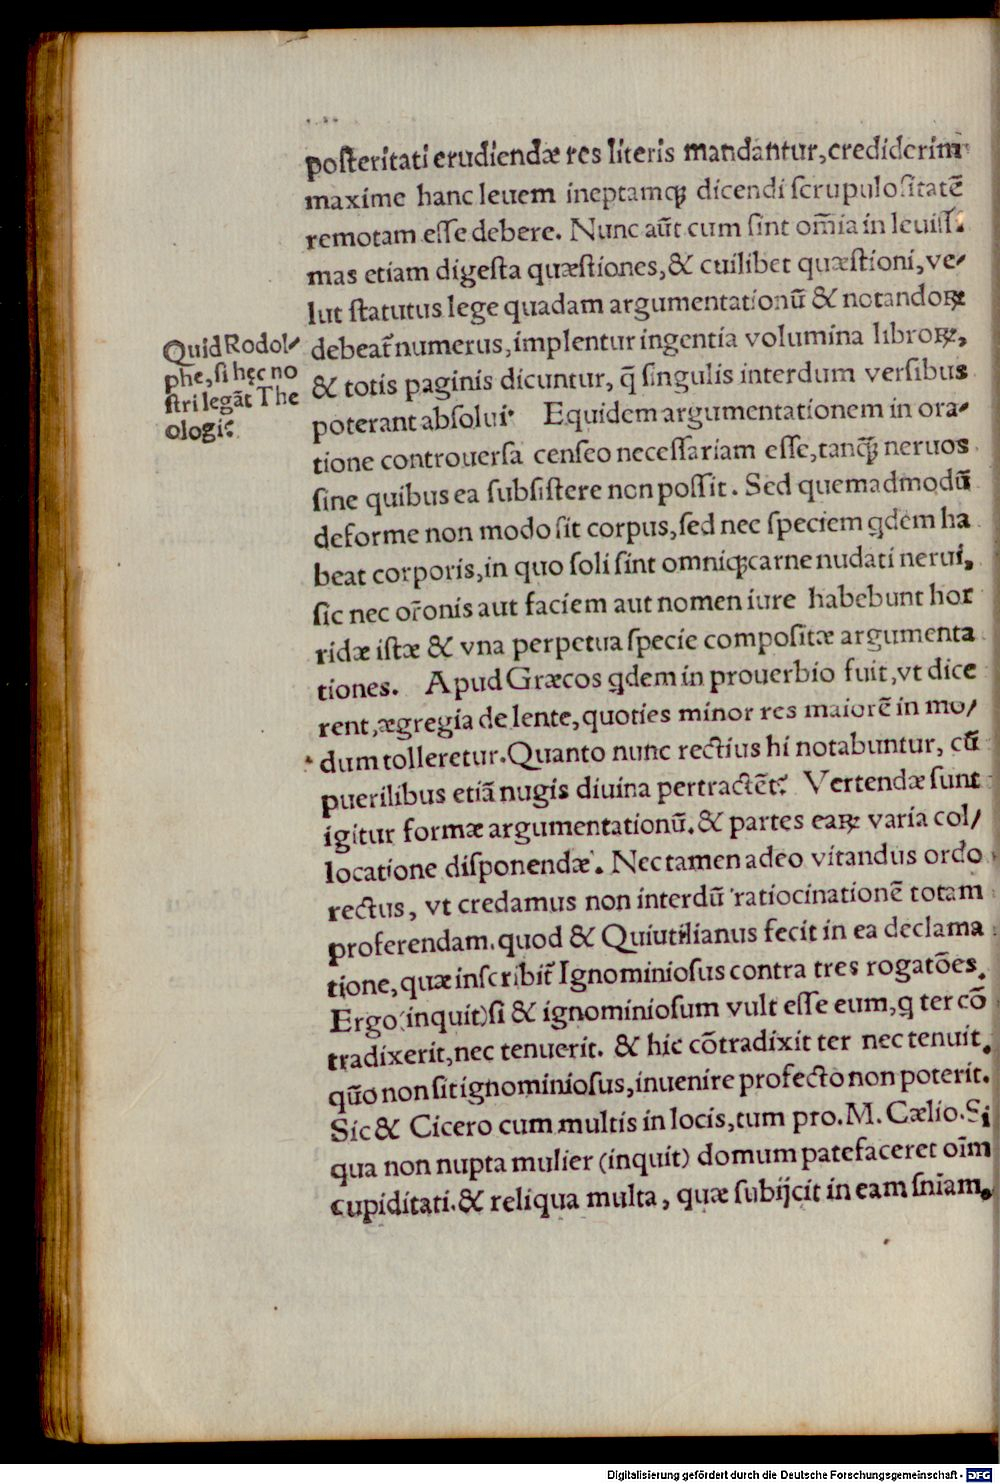 posteritati erudiendæ res literis mandantur, crediderim
maxime hanc leuem ineptamq; dicendi scrupulositatẽ
remotam esse debere. Nunc aũt cum sint om̃ia in leuiss.
mas etiam digesta quæstiones, & cuilibet quæstioni, ve⸗
lut statutus lege quadam argumentationũ & notandoꝝ
debeat̃ numerus, implentur ingentia volumina libroꝝ,
& totis paginis dicuntur, q̃ singulis interdum versibus
poterant absolui· Equidem argumentationem in ora⸗
tione controuersa censeo necessariam esse, tanq̃; neruos
sine quibus ea subsistere non possit. Sed quemadmodũ
deforme non modo sit corpus, sed nec speciem qdem ha
beat corporis, in quo soli sint omniq; carne nudati nerui,
sic nec or̃onis aut faciem aut nomen iure habebunt hor
ridæ istæ & vna perpetua specie compositæ argumenta
tiones. Apud Græcos qdem in prouerbio fuit, vt dice
rent, ægregia de lente, quoties minor res maiorẽ in mo/
dum tolleretur. Quanto nunc rectius hi notabuntur, cũ
puerilibus etiã nugis diuina pertractẽt? Vertendæ sunt
igitur formæ argumentationũ. & partes eaꝝ varia col/
locatione disponendæ. Nec tamen adeo vitandus ordo
rectus, vt credamus non interdũ ratiocinationẽ totam
proferendam. quod & Quiutilianus fecit in ea declama
tione, quæ inscribit̃ Ignominiosus contra tres rogatões.
Ergo (inquit) si & ignominiosum vult esse eum, q ter cõ
tradixerit, nec tenuerit. & hic cõtradixit ter nec tenuit.
qũo non sit ignominiosus, inuenire profecto non poterit.
Sic & Cicero cum multis in locis, tum pro. M. Cælio. Si
qua non nupta mulier (inquit) domum patefaceret oĩm
cupiditati. & reliqua multa, quæ subijcit in eam sñiam.
Quid Rodol⸗
phe, si hęc no
stri legãt The
ologi?
Digitalisierung gefördert durch die Deutsche Forschungsgemeinschaft - DFG